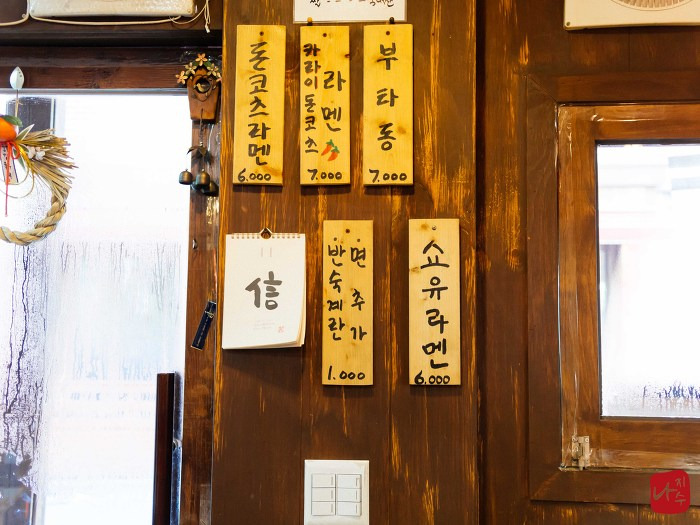 돈코츠라멘
6.000
카라이돈코츠
라멘
7.000
부타동
7.000
信
반숙계란
면추가
1.000
쇼유라멘
6.000
나지수